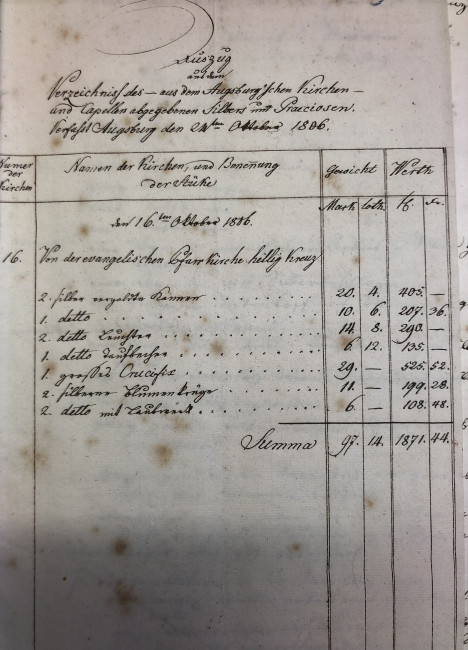 Auszug
aus dem
Verzeichniss des – aus dem Augsburg'schen Kirchen –
und Capellen abgegebenen Silbers und Praeciosen.
Verfasst Augsburg den 24ten Oktober 1806.
Numer der Kirchen | Namen der Kirchen, und Benenung der Stüke | Gewicht | Werth
Mark | Loth | fl. | Kr.
den 16ten Oktober 1806.
16. Von der evangelischen Pfarr Kirche heilig Kreuz
2. silber vergoldte Kannen . . . . . . . 20. 4. 405. —
1. detto . . . . . . . 10. 6. 207. 36.
2. detto Leuchter . . . . . . . 14. 8. 290. —
1. detto . . . . . . . 6. 12. 135. —
1. grosses Crucifix . . . . . . . 29. — 525. 52.
2. silberne Blumenkrüge . . . . . . . 11. — 199. 28.
2. detto mit Laubwerk . . . . . . . 6. — 108. 48.
Summa 97. 14. 1871. 44.